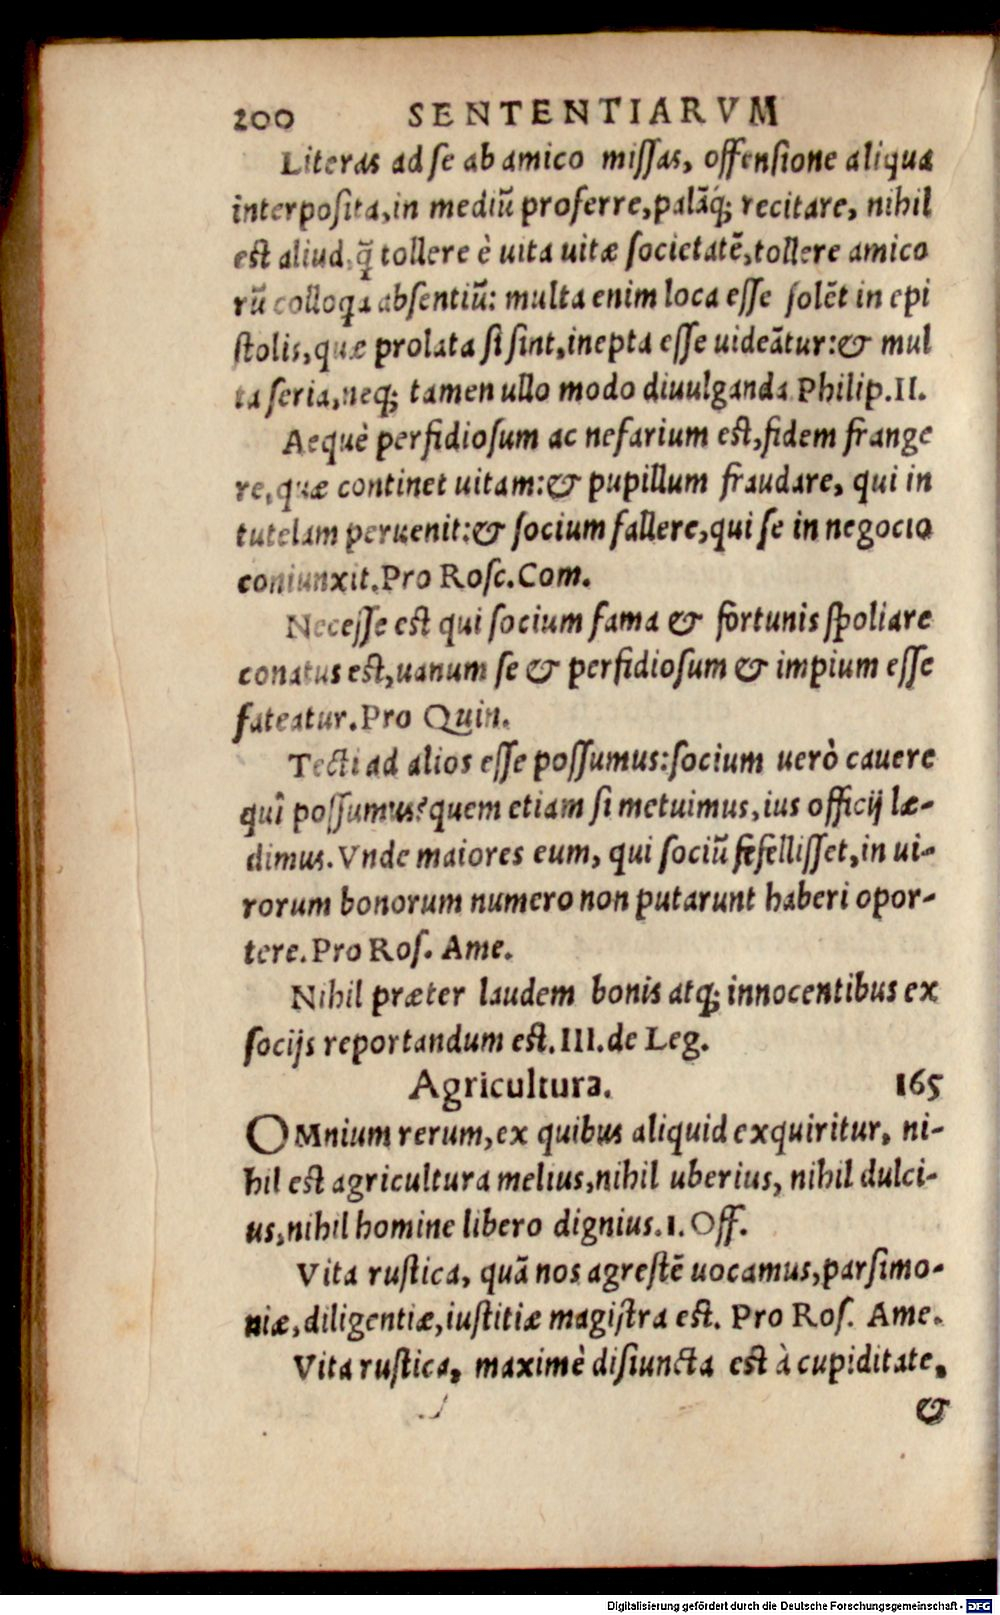 200 SENTENTIARVM
Literas ad se ab amico missas, offensione aliqua
interposita, in mediũ proferre, palãq; recitare, nihil
est aliud, q̃ tollere è uita uitæ societatẽ, tollere amico
rũ colloqa absentiũ: multa enim loca esse solẽt in epi
stolis, quæ prolata si sint, inepta esse uideãtur: & mul
ta seria, neq; tamen ullo modo diuulganda Philip. II.
Aequè perfidiosum ac nefarium est, fidem frange
re, quæ continet uitam: & pupillum fraudare, qui in
tutelam peruenit: & socium fallere, qui se in negocio
coniunxit. Pro Rosc. Com.
Necesse est qui socium fama & fortunis spoliare
conatus est, uanum se & perfidiosum & impium esse
fateatur. Pro Quin.
Tecti ad alios esse possumus: socium uerò cauere
quî possumus? quem etiam si metuimus, ius officij læ-
dimus. Vnde maiores eum, qui sociũ fefellisset, in ui-
rorum bonorum numero non putarunt haberi opor-
tere. Pro Ros. Ame.
Nihil præter laudem bonis atq; innocentibus ex
socijs reportandum est. III. de Leg.
Agricultura. 165
OMnium rerum, ex quibus aliquid exquiritur, ni-
hil est agricultura melius, nihil uberius, nihil dulci-
us, nihil homine libero dignius. 1. Off.
Vita rustica, quã nos agrestẽ uocamus, parsimo-
niæ, diligentiæ, iustitiæ magistra est. Pro Ros. Ame.
Vita rustica, maximè disiuncta est à cupiditate,
&
Digitalisierung gefördert durch die Deutsche Forschungsgemeinschaft - DFG